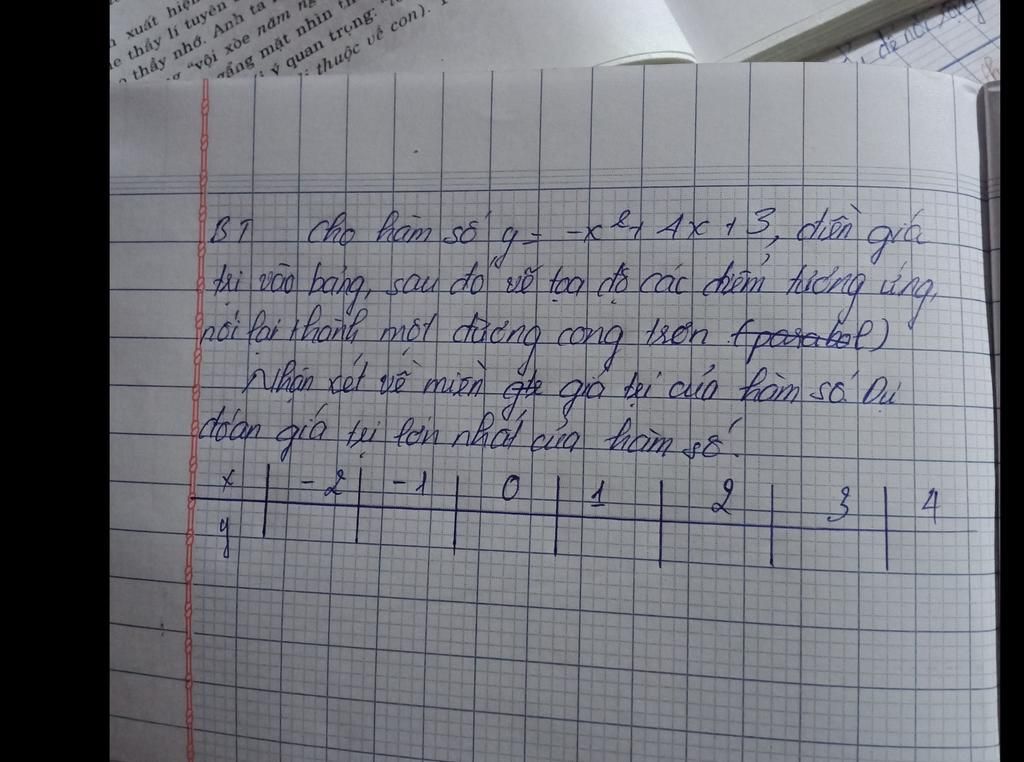 xuất hiện
thầy lí tuyên
thầy nhớ. Anh ta
"vội xòe năm ng
gẳng mặt nhìn th
ý quan trọng:
thuộc về con).
BT cho hàm số y = -x² + 4x + 3, điền giá
trị vào bảng, sau đó vẽ tọa độ các điểm tương ứng,
nối lại thành một đường cong trơn (parabol)
Nhận xét về miền giá trị của hàm số. Dự
đoán giá trị lớn nhất của hàm số.
x | -2 | -1 | 0 | 1 | 2 | 3 | 4
y